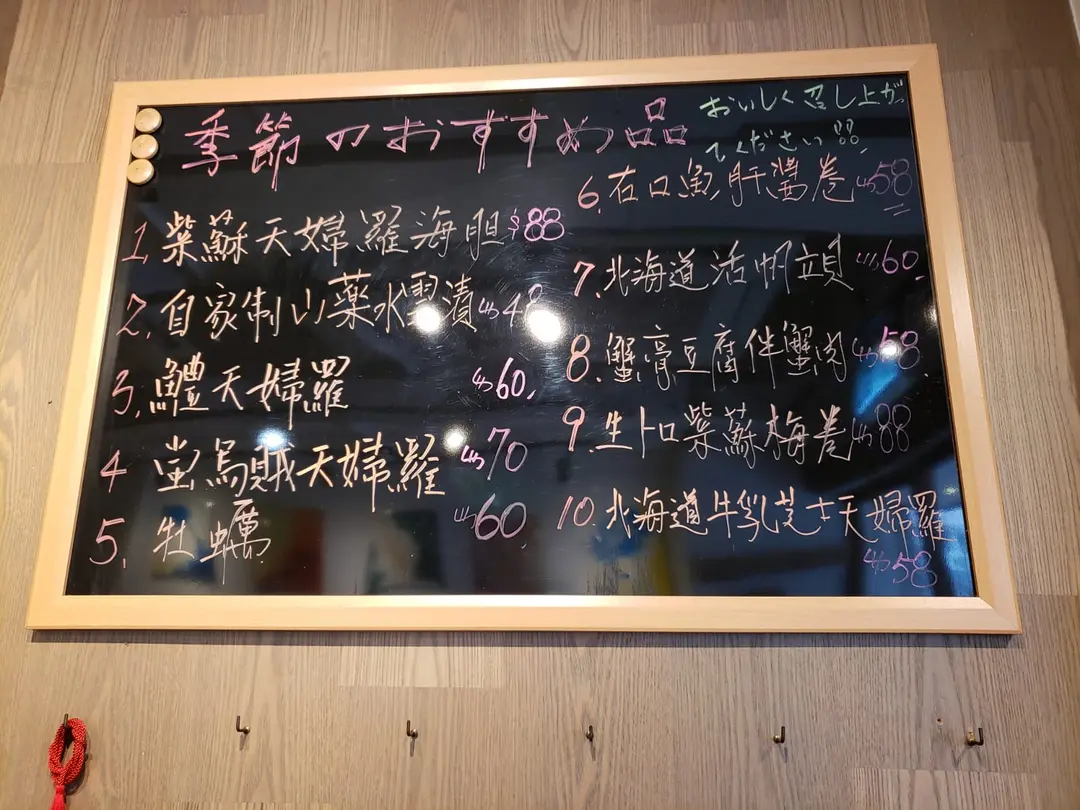 季節のおすすめ品
おいしく召し上がっ
てください!!
1. 紫蘇天婦羅海胆 $88
2. 自家制山藥水雲漬 48
3. 鱧天婦羅 60
4 螢烏賊天婦羅 70
5. 牡蠣 60
6. 右口魚肝醬卷 58
7. 北海道活帆立貝 60
8. 蟹膏豆腐伴蟹肉 58
9. 生トロ紫蘇梅卷 88
10. 北海道牛乳芝士天婦羅
58